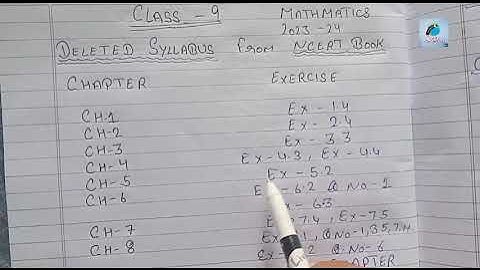 CLASS - 9 MATHMATICS
2023-24
DELETED SYLLABUS from NCERT BOOK
CHAPTER EXERCISE
CH-1 Ex - 1.4
CH-2 Ex - 2.4
CH-3 Ex - 3.3
CH-4 Ex - 4.3, Ex - 4.4
CH-5 Ex - 5.2
CH-6 6.2 Q No - 1
- 6.3
CH-7 7.4, Ex - 7.5
CH-8 Q No - 1,3,5,7,
Q No - 6
CHAPTER